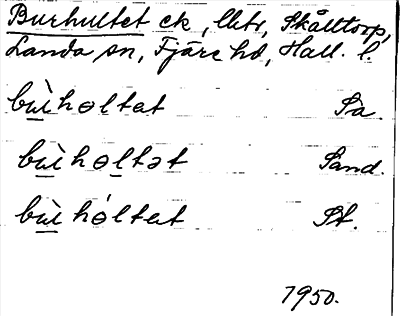 Burhultet ek, Skålltorp,
Landa sn, Fjäre hd, Hall. l.
bu̠ìhɵltat Sa.
bu̠ìhɵl̠tət Sand.
bu̠ìhóltat St.
1950.